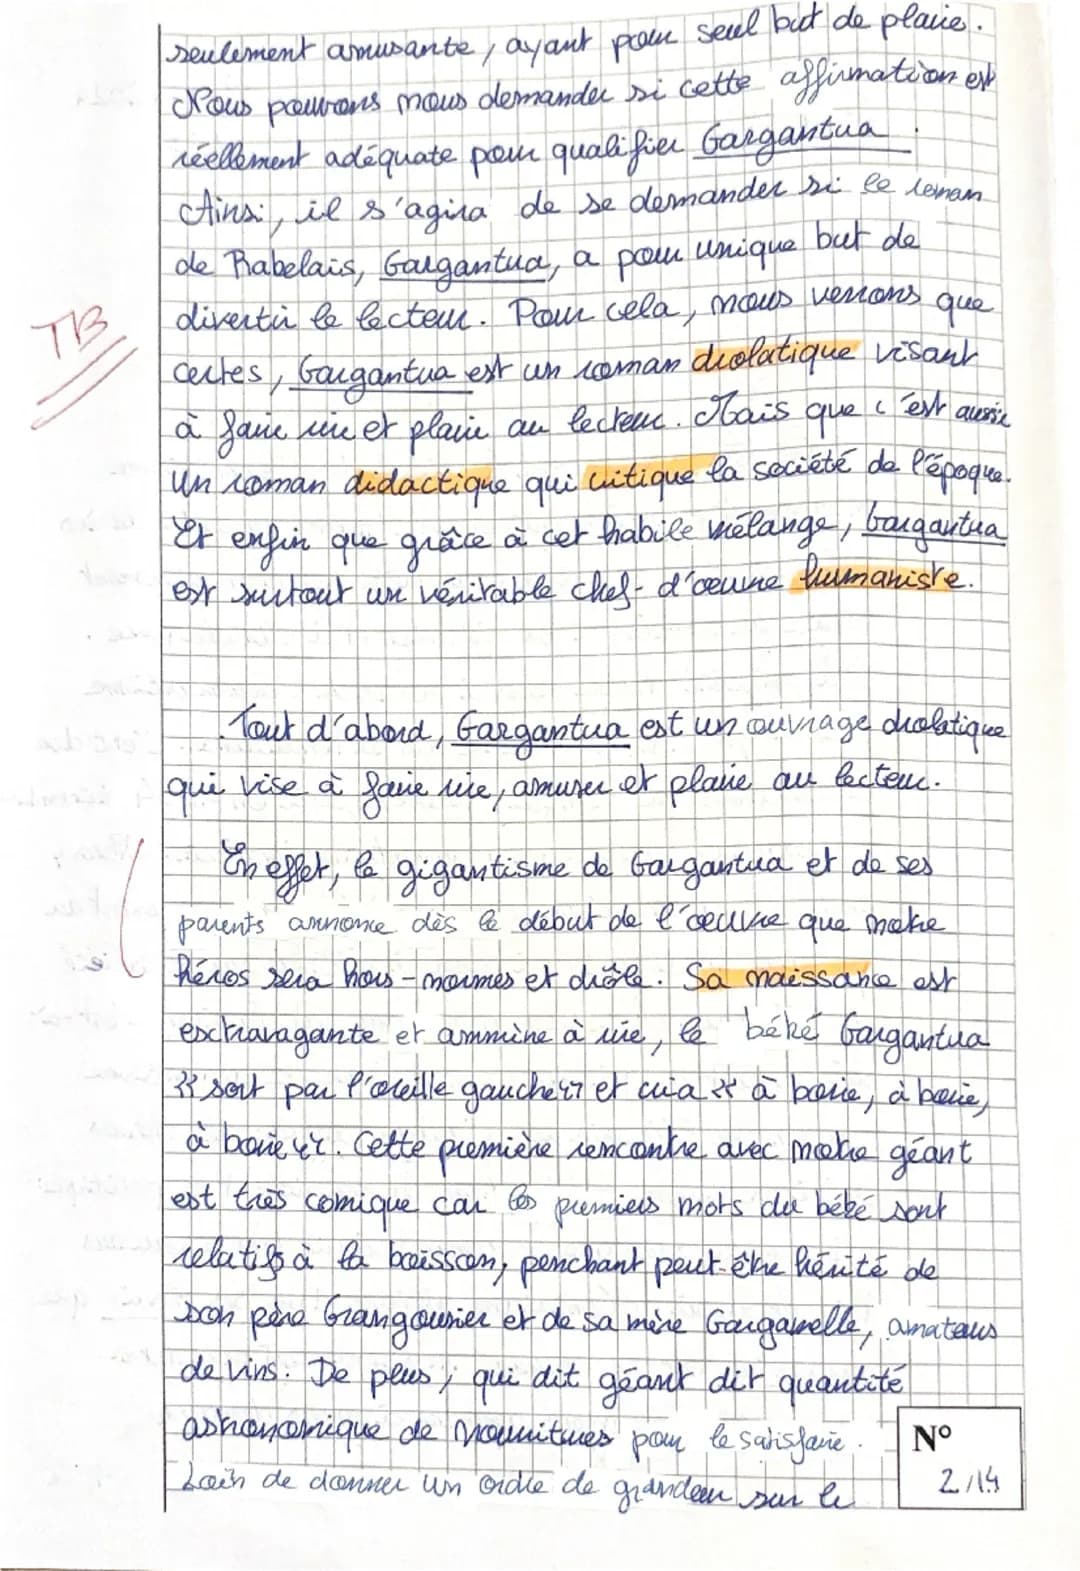 seulement amusante, ayant pour seul but de plaire.
Nous pouvons nous demander si cette affirmation est
réellement adéquate pour qualifier Gargantua.
Ainsi, il s'agira de se demander si le roman
de Rabelais, Gargantua, a pour unique but de
divertir le lecteur. Pour cela, nous verrons que
TB
certes, Gargantua est un roman drolatique visant
à faire rire et plaire au lecteur. Mais que c'est aussi
un roman didactique qui critique la société de l'époque.
Et enfin que grâce à cet habile mélange, Gargantua
est surtout un véritable chef-d'œuvre humaniste.
Tout d'abord, Gargantua est un ouvrage drolatique
qui vise à faire rire, amuser et plaire au lecteur.
En effet, le gigantisme de Gargantua et de ses
parents annonce dès le début de l'œuvre que notre
héros sera hors-normes et drôle. Sa naissance est
extravagante et ammène à rire, le bébé Gargantua
"sort par l'oreille gauche" et cria "à boire, à boire,
à boire". Cette première rencontre avec notre géant
est très comique car les premiers mots du bébé sont
relatifs à la boisson, penchant peut-être hérité de
son père Grangousier et de sa mère Gargamelle, amateurs
de vins. De plus, qui dit géant dit quantité
astronomique de nourritures pour le satisfaire.
Loin de donner un ordre de grandeur sur le
N°
2/14